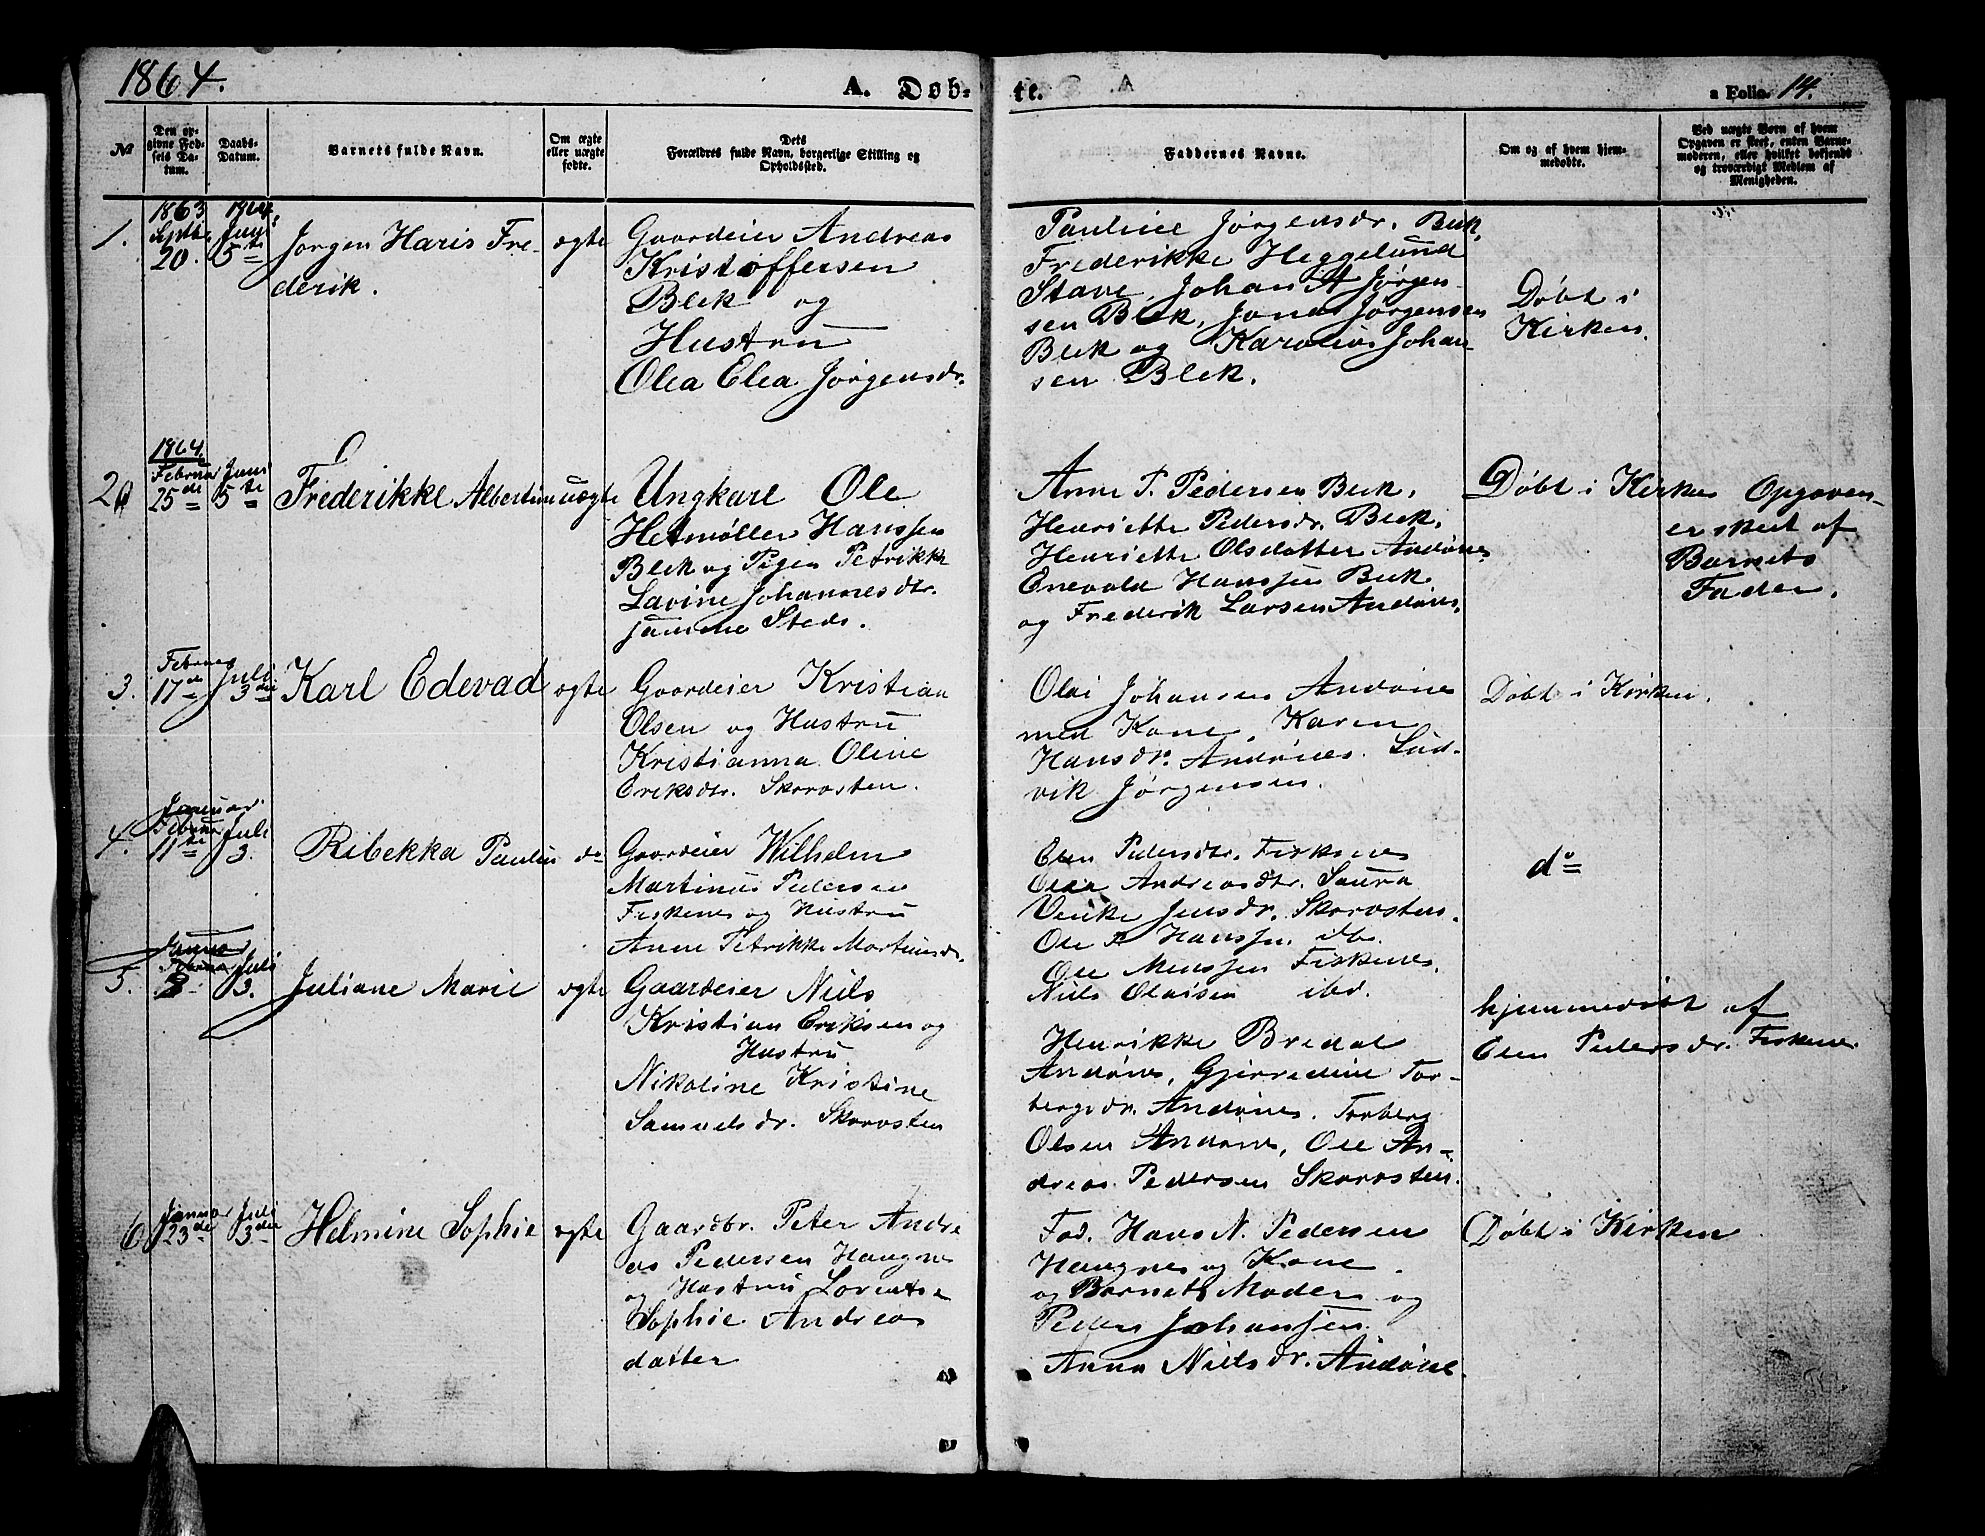 1864.
A. Døb-
te.
a Folio. 14.
№
Den op-
givne Fød-
sels Da-
tum.
Daabs-
Datum.
Barnets fulde Navn.
Om ægte
eller uægte
fødte.
Dets
Forældres fulde Navn, borgerlige Stilling og
Opholdssted.
Faddernes Navne.
Om og af hvem hjem-
medøbte.
Ved uægte Børn af hvem
Opgaven er skeet, enten Barne-
moderen, eller hvilket bekjendt
og troværdigt Medlem af
Menigheden.
1.
1863
Septbr
20.
1864.
Juni
5te
Jørgen Haris Fre-
derik.
ægte
Gaardeier Andreas
Kristoffersen
Blek og
Hustru
Olea Elea Jørgensdr.
Pauline Jørgensdr. Blek,
Frederikke Heggelund
Stave, Johan A Jørgen
sen Blek, Jonas Jørgensen
Blek og Karolius Johan-
sen Blek.
Døbt i
Kirken.
2
1864.
Februar
25de
Juni
5te
Frederikke Albertine
uægte
Ungkarl Ole
Hetmøller Hanssen
Blek og Pigen Petrikke
Lavine Johannesdtr.
samme Steds.
Anne P. Pedersen Blek.
Henriette Pedersdr. Blek.
Henriette Olsdatter Andønes
Enevold Hanssen Blek
og Frederik Larsen Andønes.
Døbt i Kirken
Opgaven-
er skeet af
Barnets
Fader.
3.
Februar
17de
Juli
3die
Karl Edevad
ægte
Gaardeier Kristian
Olsen og Hustru
Kristianna Oline
Eriksdtr. Skorosten.
Olai Johansen Andønes
med Kone, Karen
Hansdr. Andønes. Lud-
vik Jørgensen.
Døbt i Kirken.
4.
Januar
Februar
11te
Juli
3.
Ribekka Paulin
do
Gaardeier Wilhelm
Martinus Pedersen
Fiskenes og Hustru
Anne Petrikke Mortensdr.
Elen Pedersdtr. Fiskenes
Olea Andreasdtr. Saura
Venke Jensdr. Skorosten.
Ole P Hanssen ibd.
Ole Monssen Fiskenes.
Niels Olaisen ibd.
do
5.
Januar
Februar
Juli
3.
Juliane Marie
ægte
Gaardeier Niels
Kristian Eriksen og
Hustru
Nikoline Kristine
Samuelsdr. Skorosten
Henrikke Bredal
Andønes, Gjerredine Tor-
bergsdr. Andønes. Torberg
Olsen Andønes, Ole An-
dreas Pedersen Skorosten.
hjemmedøbt af
Elen Pedersdr. Fiskenes
6
Januar
23de
Juli
3die
Helmine Sophie
ægte
Gaardbr. Peter Andre
as Pedersen Haugnes
og Hustru Lorentse
Sophie Andreas
datter
Fad. Hans N. Pedersen
Haugnes og Kone
og Barnets Moder og
Peder Johanssen.
Anna Nielsdr. Andønes
Døbt i Kirken